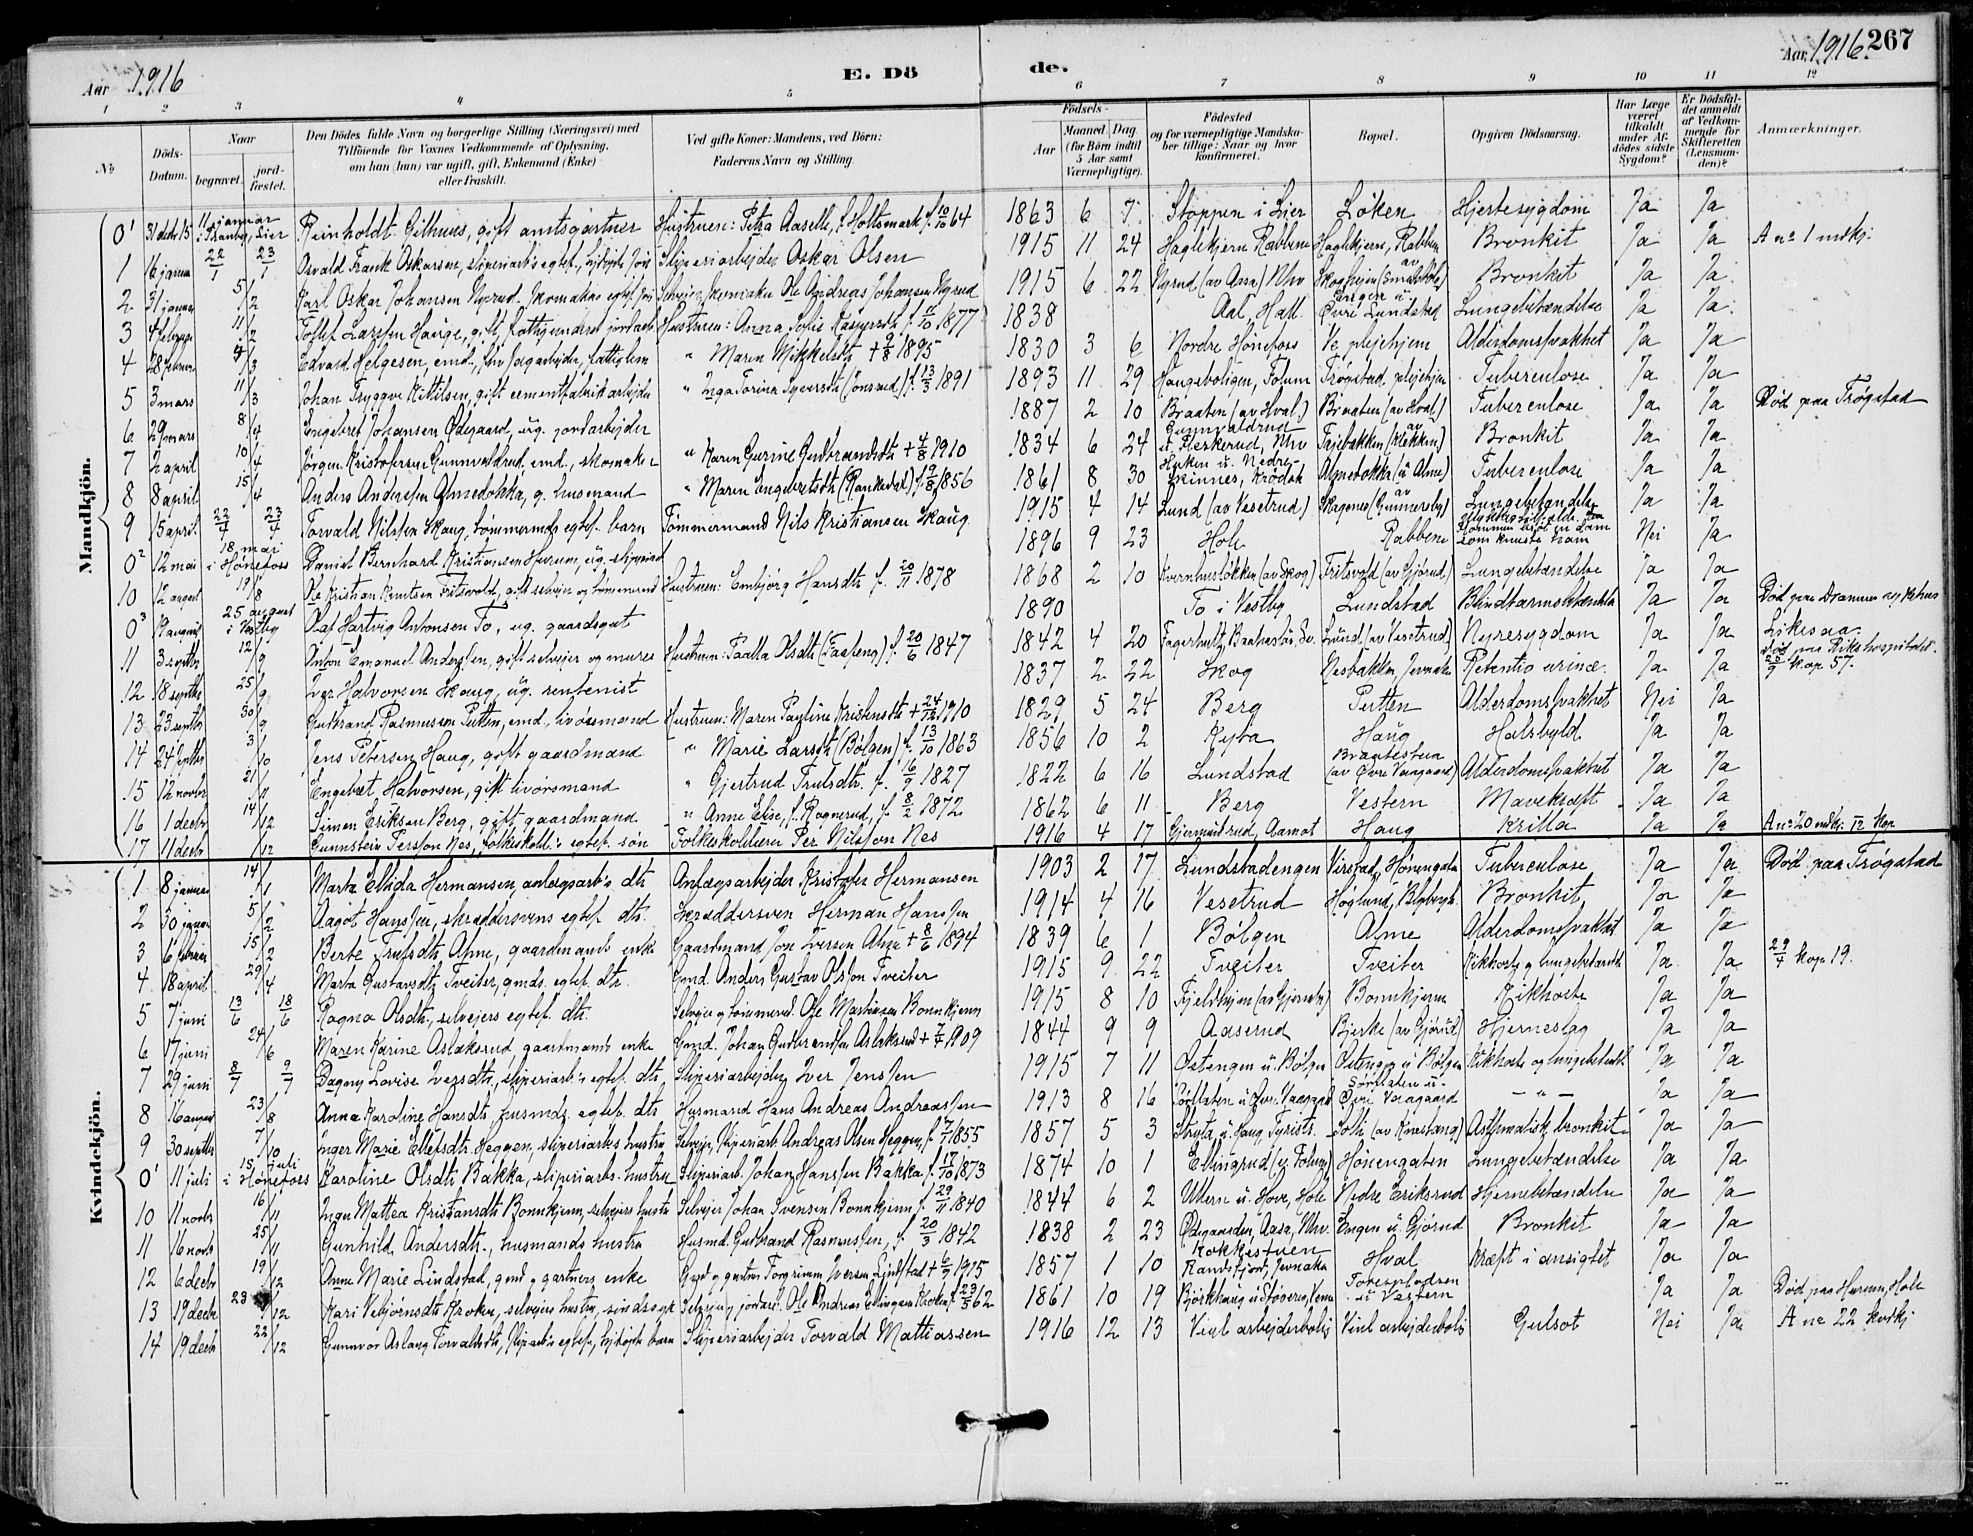 Aar 1916
E. Döde.
Aar 1916. 267
1 2 3 4 5 6 7 8 9 10 11 12
No
Döds-Datum.
Naar
begravet.
jordfæstet.
Den Dödes fulde Navn og borgerlige Stilling (Næringsvei) med
Tilföiende for Voxnes Vedkommende af Oplysning,
om han (hun) var ugift, gift, Enkemand (Enke)
eller fraskilt.
Ved gifte Koner: Mandens, ved Börn:
Faderens Navn og Stilling.
Födsels-
Aar
Maaned. Dag
(for Börn indtil
5 Aar samt
Værnepligtige).
Födested
og for værnepligtige Mandskaber tillige: Naar og hvor
konfirmeret.
Bopæl.
Opgiven Dödsaarsag.
Har Læge
været
tilkaldt
under Afdödes sidste
Sygdom?
Er Dödsfaldet anmeldt
af Vedkommende for
Skifteretten
(Lensmanden)?
Anmærkninger.
Mandkjön.
0¹ 31 decbr 15 11 januar i Tranby, Lier Reinholdt Gilhuus, gift amtsgartner Hustruen: Petra Aaselle, f. Holtsmark f. 10/10 64 1863 6 7 Stoppen i Lier Löken Hjertesygdom Ja Ja
1 16 januar 22/1 23/1 Osvald Frank Oskarsen, sliperiarb's egtef. Sliperiarbejder Oskar Olsen 1915 11 24 Haglekjern Rabben Haglekjern, Rabben Bronkit Ja Ja A nº 1 mdkj.
2 31 januar 5/2 Karl Oskar Johansen Nyrud. skomakers egtef. Selvejer, skomaker Ole Andreas Johansen Nyrud 1915 6 22 Nyrud (av Aasa) Nhv Skoghejen Bronkit Ja Ja
3 4 februar 11/2 Tollef Larssen Hauge, gift, jordarb. Hustruen: Anna Sofie 11/10 1877 1838 Aal, Hall. Engen u. Øvre Lundstad Lungebetændelse Ja Ja
4 28 februar 4/3 Edvard Helgesen, emd., fhv sagarbejder, fattiglem " Maren Mikkelsdtr + 9/8 1895 1830 3 6 Nordre Hönefoss Ve plejehjem Alderdomssvakhet Ja Ja
5 3 mars 11/3 Johan Tryggve Kittilsen, gift cementfabrikarbejder " Inga Torine Syversdtr (Önsrud) f. 13/3 1891 1893 11 29 Haugsboligen, Tolum Trögstad plejehjem Tuberculose Ja Ja Död paa Trögstad
6 29 mars 8/4 Engebret Johansen Ødegaard, ug. jordarbejder 1887 2 10 Braaten (av Hval) Braaten (av Hval) Tuberculose Ja Ja
7 2 april 10/4 Jörgen Kristofersen Gunnvaldrud, emd., skomaker " Karen Gurine Gudbrandsdtr + 4/8 1910 1834 6 24 Gunnvaldrud u. Fleskerud, Nhv Tajebakken (av Klekken) Bronkit Ja Ja
8 8 april 15/4 Anders Andersen Almedokka, g. husmand " Maren Engebretsdtr 1856 1861 8 30 Skinnes, Krödsh. Almedokka (u Alme) Tuberculose Ja Ja
9 15 april 22/4 23/4 Torvald Nilssen Skaug, tömmermds egtef. barn Tömmermand Nils Kristiansen Skaug 1915 4 14 Lund (av Vesetrud) Skagenes (av Gunnersby) Lungebetændelse Ja Ja
0² 12 mai 18 mai i Hönefoss Daniel Bernhard Kristiansen Hurum, ug. 1896 9 23 Hole Rabben som knuste ham Nei Ja
10 12 august 19/8 Ole Kristian Knutsen Fritsvold, gift selvejer og tömmermd Hustruen: Embjörg Hansdtr f. 20/11 1878 1868 2 10 Kvernhuslökken (av Skog) Fritsvold (av Gjörud) Lungebetændelse Ja Ja
0³ 19 august 25 august i Vestby Olaf Hartvig Antonsen To, ug. gaardsgut 1890 To i Vestby Lundstad Blindtarmsbetændelse Ja Ja Död paa Drammen sykehus
11 3 septbr 12/9 Anton Emanuel Anderssen, gift selvejer og murer Hustruen: Olsdtr f. 20/6 1847 1842 4 20 Fagerhult, Baahuslän, Sv. Lund (av Vesetrud) Nyresygdom Ja Ja
12 18 septbr 25/9 Iver Halvorsen Skaug, ug. rentenist 1837 2 22 Skog Nesbakken, Jevnaker Retentio urinæ. Ja Ja Död paa Rikshospitalet. kop 57.
13 23 septbr 30/9 Gudbrand Rasmussen Putten, emd., livörsmand Hustruen: Maren Pauline Kristensdtr + 24/12 1910 1829 5 24 Berg Putten Alderdomssvakhet Nei Ja
14 24 septbr 3/10 Jens Petersen Haug, gift gaardmand " Marie Larsdtr (Bölgen) f. 13/10 1863 1856 10 2 Kyta Haug Halsbyld Ja Ja
15 12 novbr 21/11 Engebret Halvorsen, gift livörsmand " Gjertrud Trulsdtr. f. 16/9 1827 1822 6 16 Lundstad Braatestua (av Øvre Vaagaard) Alderdomssvakhet Ja Ja
16 1 decbr 14/12 Simen Eriksen Berg, gift gaardmand " Anne Elise, f. Rognerud, f. 8/2 1872 1862 6 11 Berg Vestern Mavekræft Ja Ja
17 11 decbr /12 Gunnstein Persson Nes, folkeskoll.'s egtef. sön Folkeskolelærer Per Nilsson Nes 1916 4 17 Gjermundrud, Aamot Haug Krilla Ja Ja A nº 20 mdkj.
Kvindekjön.
1 8 januar 14/1 Marta Elvida Hermansen, anlægsarb's dtr Anlægsarbejder Kristofer Hermansen 1903 2 17 Lundstadengen Virstad, Hönengata Tuberculose Ja Ja Död paa Trögstad
2 30 januar 5/2 Aagot Hanssen, skræddersvens egtef. dtr. Skræddersven Herman Hanssen 1914 4 16 Vesetrud Höglund, Blybergh. Bronkit Ja Ja
3 6 februar 15/2 Berte Trulsdtr. Alme, gaardmands enke Gaardmand Jon Iversen Alme + 8/6 1894 1839 6 1 Bölgen Alme Alderdomssvakhet Ja Ja
4 18 april 29/4 Marta Gustavsdtr Tveiter, gmds. egtef. dtr. Gmd. Anders Gustav Olsson Tveiter 1915 9 22 Tveiter Tveiter Kikhoste og lungebetændelse Ja Ja 29/4 kop 19.
5 7 juni 13/6 18/6 Ragna Olsdtr., selvejers egtef. dtr. Selvejer og tömmermd. Ole Martinsen Bonnkjern 1915 8 10 Fjeldhejen Bonnkjern Kikhoste Ja Ja
6 17 juni 24/6 Maren Karine Aslaksrud, gaardmands enke Gmd. Johan Gudbrandsen Aslaksrud + 7/7 1909 1844 9 9 Aaserud Bjerke (av Gjörud) Hjerneslag Ja Ja
7 29 juni 8/7 9/7 Dagny Lovise Iversdtr., sliperiarb's egtef. dtr Sliperiarbejder Iver Jenssen 1915 7 11 Østengen u. Bölgen Østengen u Bölgen Kikhoste og lungebetændelse Ja Ja
8 16 august 23/8 Anna Karoline Hansdtr, husmds. egtef. dtr Husmand Hans Andreas Andreassen 1913 8 16 Sörflaten u Övr. Vaagaard Sörflaten u. Øvre Vaagaard — " — Ja Ja
9 30 septbr 7/10 Inger Marie Ellefsdtr. Heggen, sliperiarbs hustru Selvejer, sliperiarb. Andreas Olsen Heggen, f. 7/7 1855 1857 5 3 Struta u. Haug, Tyrists. Solli Asthmatisk bronkit Ja Ja
0¹ 11 juli 15 juli i Hönefoss Karoline Olsdtr Bakka, sliperiarbs. hustru Sliperiarb. Johan Hanssen Bakka f. 17/10 1873 1874 10 1 Ellingrud Hönengaten Lungebetændelse Ja Ja
10 11 novbr 16/11 Inger Mattea Kristiansdtr Bonnkjern, selvejers hustru Selvejer Johan Iversen Bonnkjern f. 29/11 1840 1844 6 2 Ullern u. Hove, Hole Nedre Eriksrud Hjernebetændelse Ja Ja
11 16 novbr 25/11 Gunhild Andersdtr., husmands hustru Husmd. Gudbrand Rasmussen, f. 20/3 1842 1838 2 23 Ødegaarden, Aasa, Nhv. Engen u. Gjörud Bronkit Ja Ja
12 6 decbr 19/12 Anne Marie Lindstad, gmd og gartners enke Gmd og gartner Torgrim Iversen Lindstad + 6/9 1915 1857 1 10 Kokkestuen Randsfjord, Jevnaker Hval Kræft i ansigtet Ja Ja
13 19 decbr 23/12 Kari Vebjörnsdtr Kroken, selvejers hustru, sindssyk Selvejer, jordarb. Ole Andreas Ellingsen Kroken f. 23/5 62 1861 10 19 Björkhaug u Vestern Ja Ja Död paa Hurum, Hole
14 19 decbr 22/12 Gunnvor Aslaug Torvaldsdtr, sliparb's egtef., hjdöpte barn Sliperiarbejder Torvald Mattiassen 1916 12 13 Viul arbejderbolig Viul arbejderbolig Gulsot Nei Ja A nº 22 kvkj